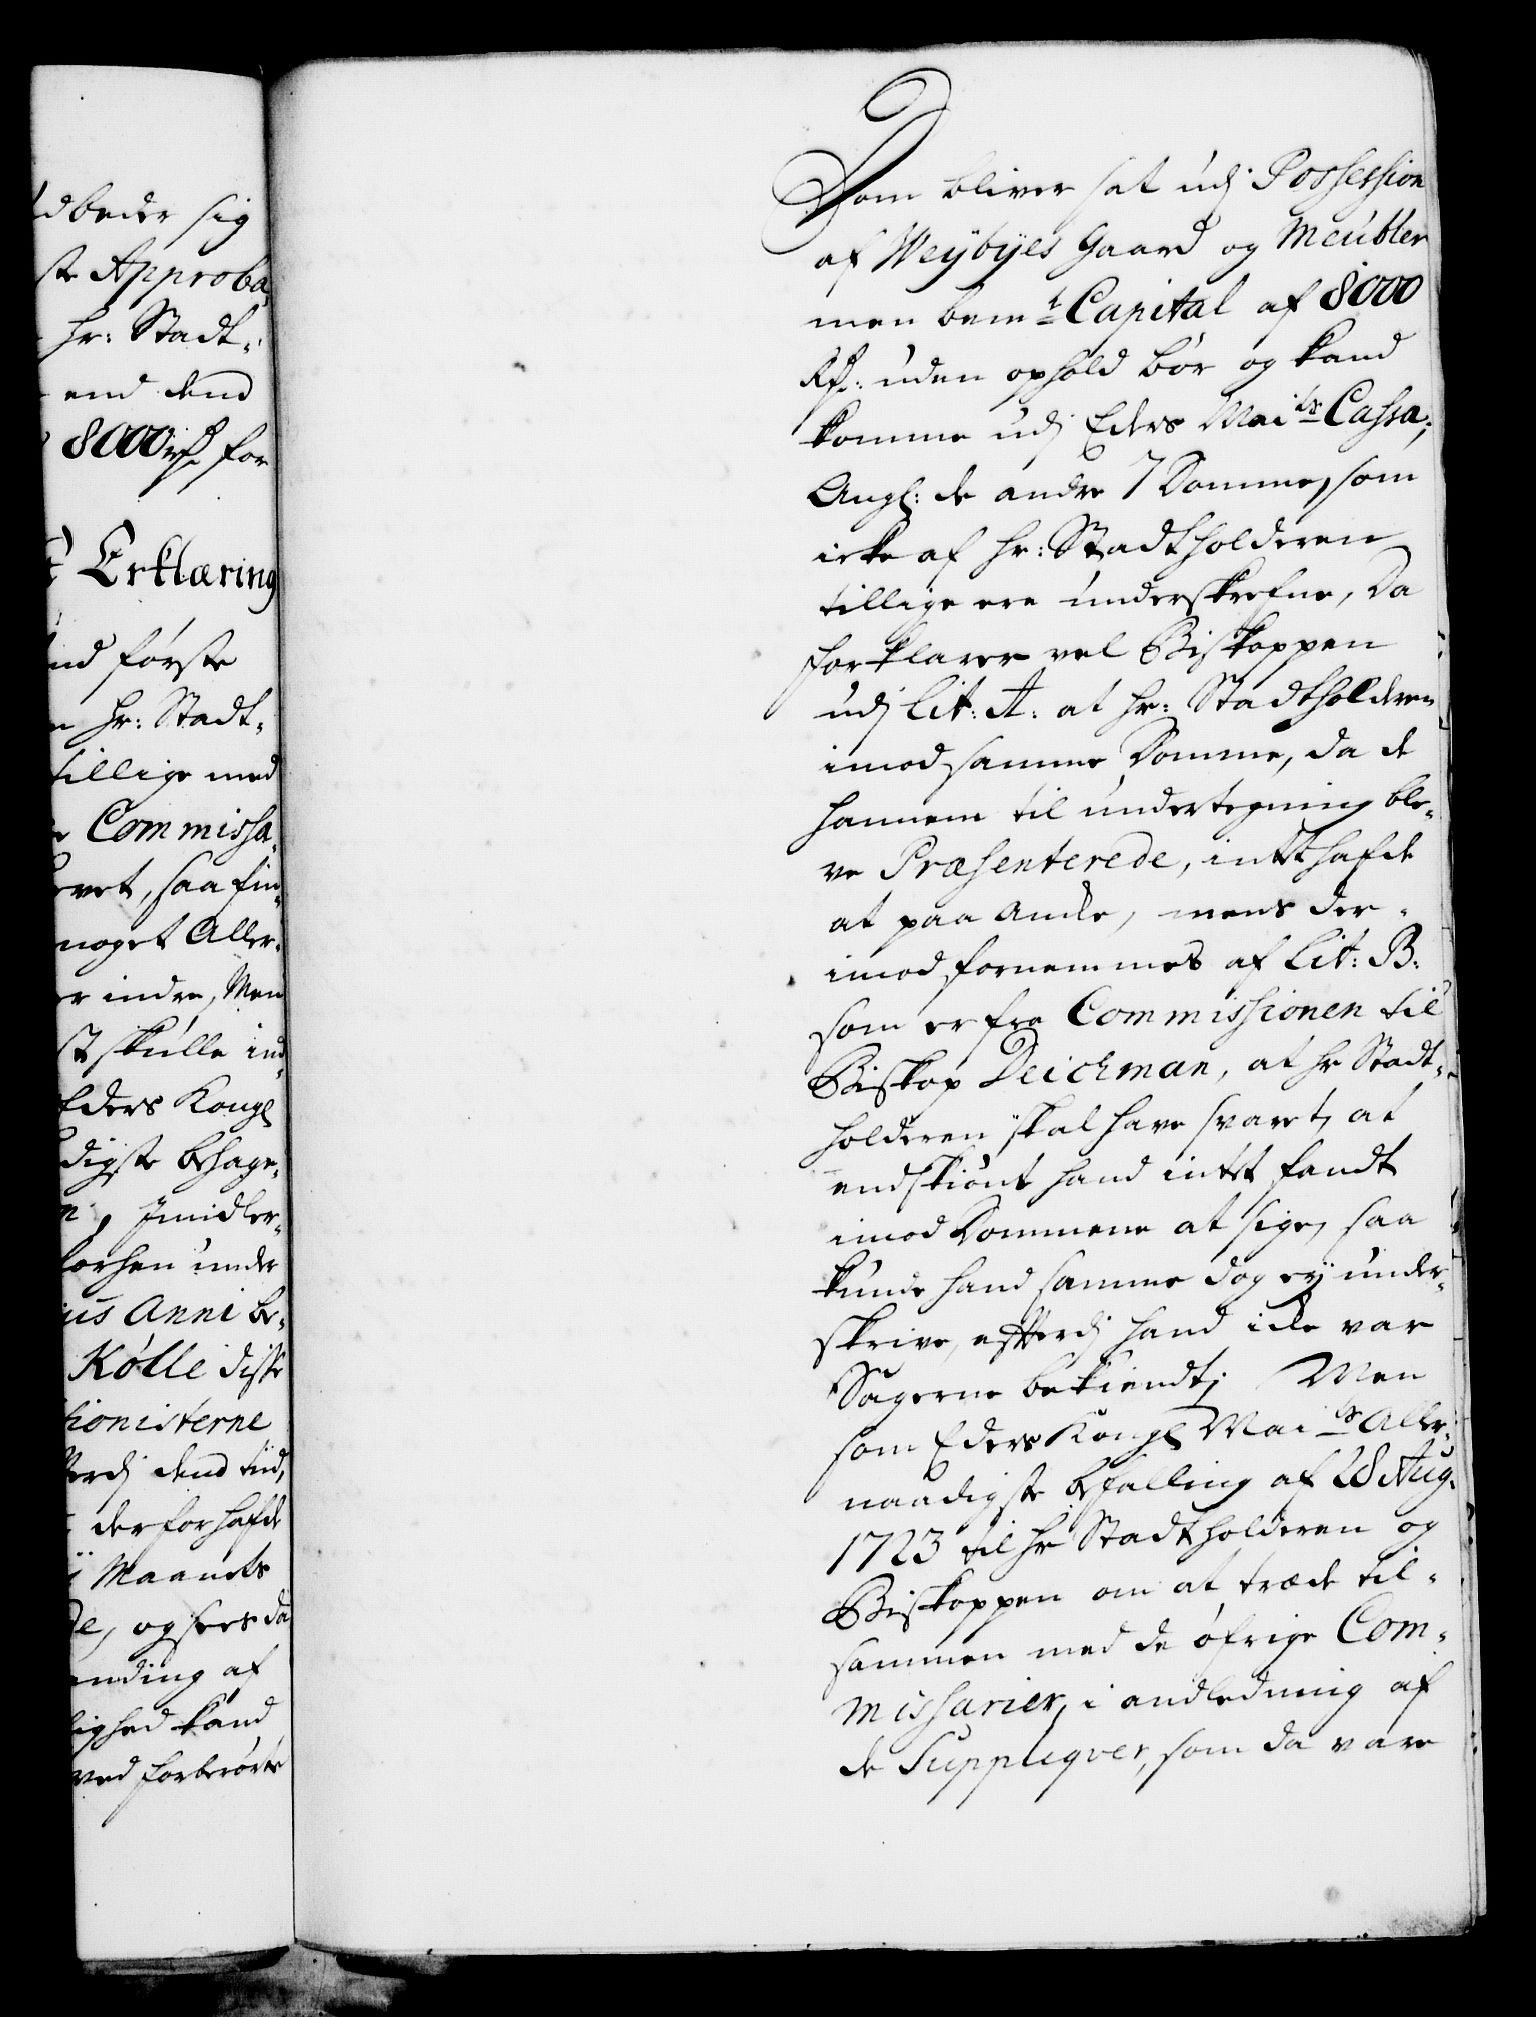 dbeder sig
ste Approba,
hr: Stadt,,
end dend
8000 rdr for
Erklæring
nd første
hr: Stadt,
tillige med
Commissa,
vet, saa fin,
noget Aller,
r indre, Men
st skulle ind,
Eders Kongl
digste behage,
n, Imidler,
forhen under
us Anni be,
Kølle disse
tionisterne
terdj dend tiid,
der for hafde
Maanets
de, og sees da
ending af
lighed kand
ved forberørte
Som bliver sat udj Possession
af Weybyes Gaard og Meubler
men bemte Capital af 8000
Rdr: uden ophold bør og kand
komme udj Eders Maits Cassa;
Angl: de andre 7 Domme, som
icke af hr: Stadtholderen
tillige ere underskrefne, Da
forklarer vel Biskoppen
udj Lit: A: at hr: Stadtholderen
imod samme Domme, da de
hannem til undertegning ble,
ve Præsenterede, intet hafde
at paa Ancke, mens der,
imod fornemmes af Lit: B:
som er fra Commissionen til
Biskop Deichman, at hr Stadt,
holderen skal have svaret, at
endskiønt hand intet fandt
imod Dommene at sige, saa
kunde hand samme dog ey under,
skrive, efterdj hand icke var
Sagerne bekiendt; Men
som Eders Kongl Maits Aller,
naadigste befalling af 28 Aug.
1723 til hr Stadtholderen og
Biskoppen om at træde til,
sammen med de øfrige Com,
missarier, i andledning af
de Suppliqver, som da vare